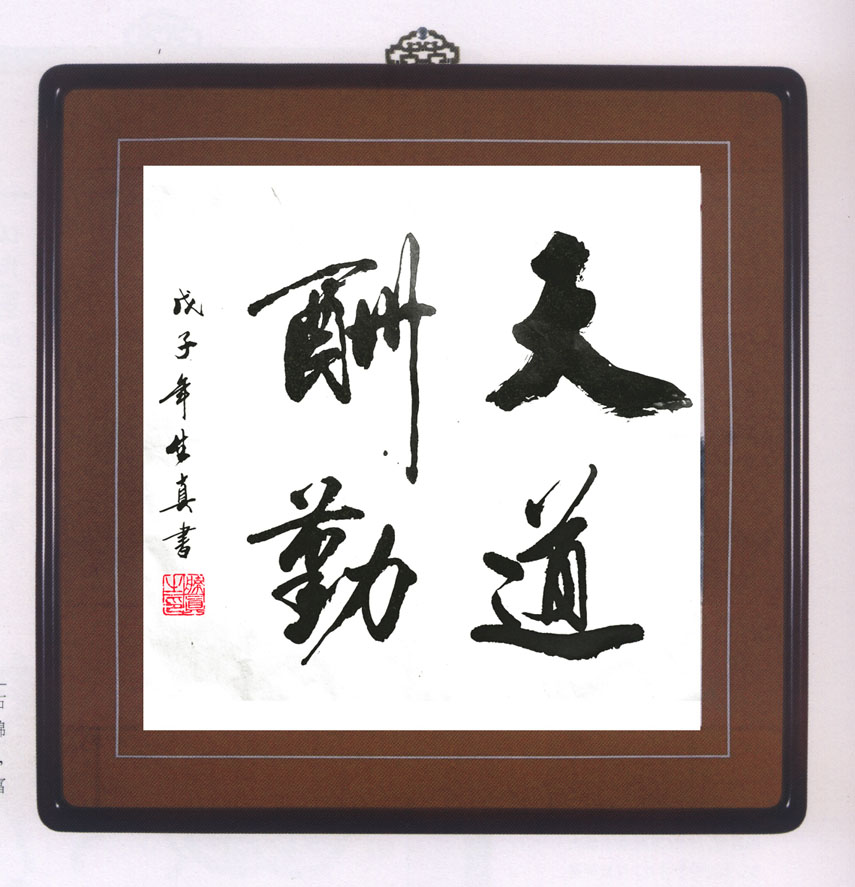 天道
酬勤
戊子年生真书